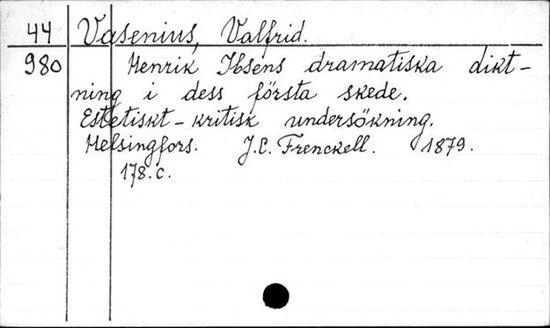 44 Vasenius, Valfrid.
980 Henrik Ibsens dramatiska dikt-
ning i dess första skede.
Estetiskt-kritisk undersökning.
Helsingfors. J.C. Frenckell. 1879.
178.c.